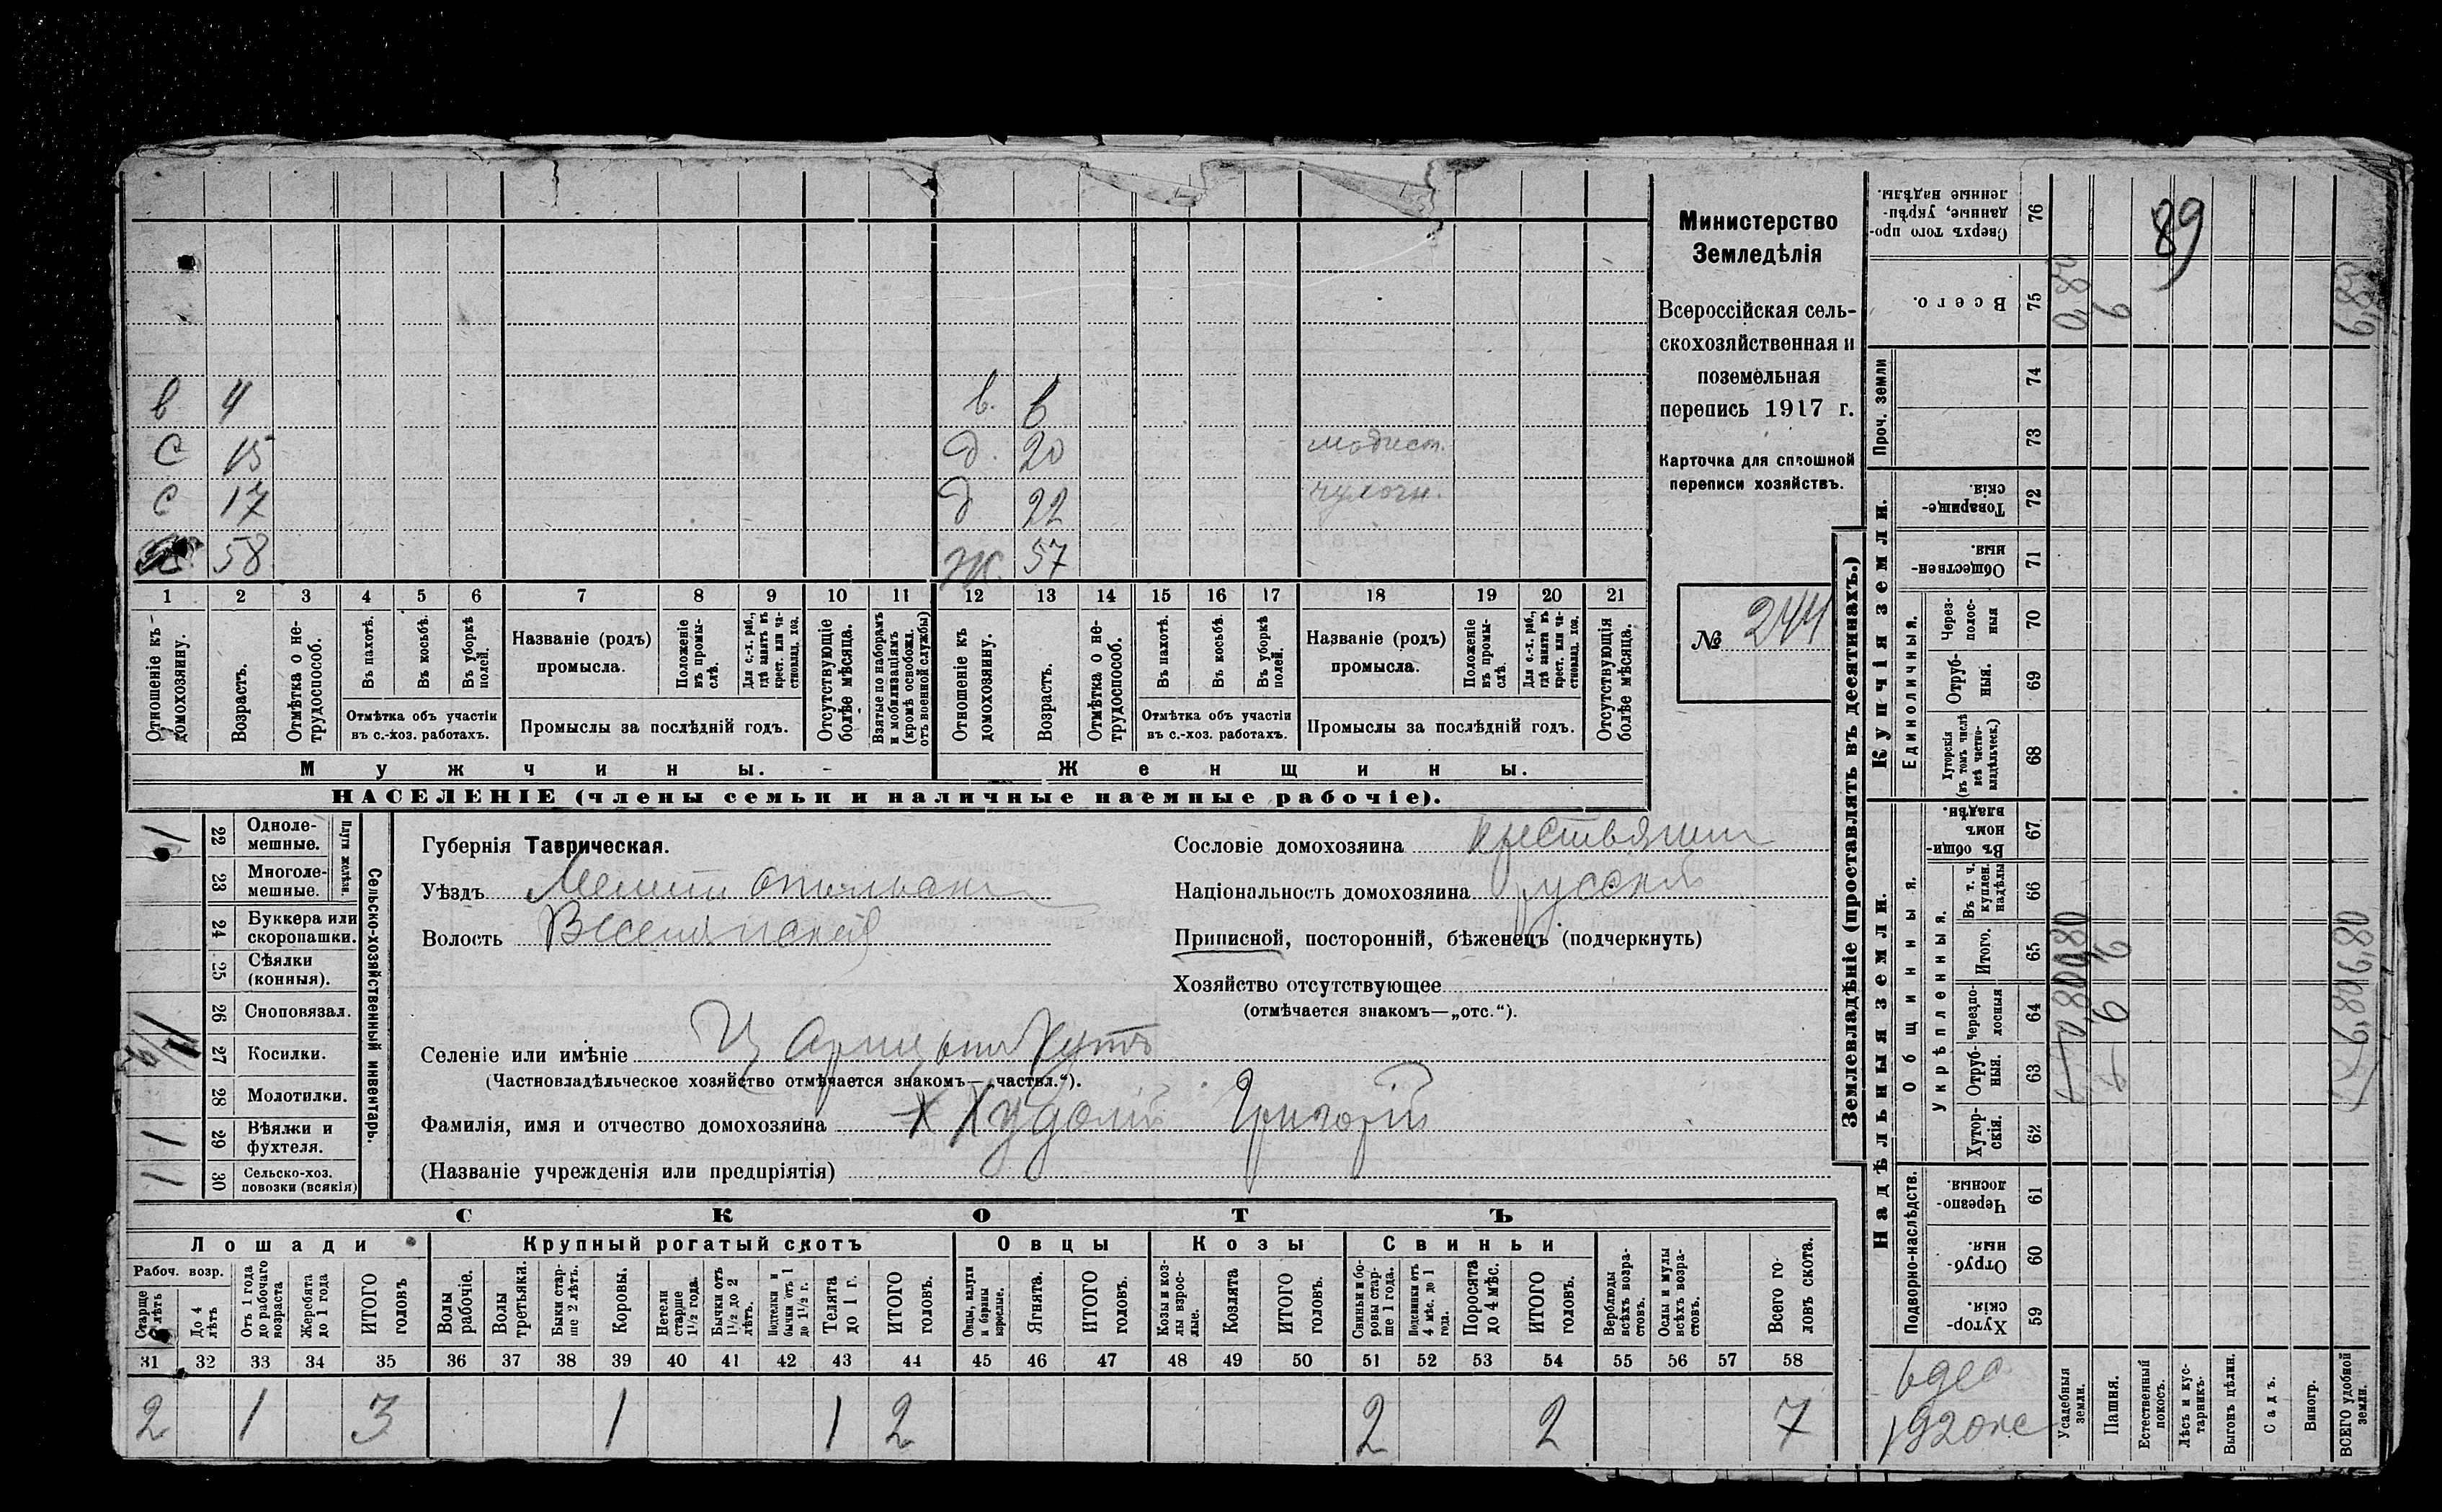 Министерство
Земледѣлія
Всероссійская сель-
скохозяйственная и
поземельная
перепись 1917 г.
Карточка для сплошной
переписи хозяйствъ.
№ 244
89
в 4
в. 6
С 15
д. 20 модист.
С 17
д 22 чулочн.
58
Ж. 57
1 2 3 4 5 6 7 8 9 10 11 12 13 14 15 16 17 18 19 20 21
Отношеніе къ домохозяину.
Возрастъ.
Отмѣтка о не-трудоспособ.
Въ пахотѣ.
Въ косьбѣ.
Въ уборкѣ полей.
Отмѣтка объ участіи
въ с.-хоз. работахъ.
Названіе (родъ)
промысла.
Положеніе въ промы-слѣ.
Для с.-х. раб., гдѣ занятъ въ крест. или ча-стновлад. хоз.
Промыслы за послѣдній годъ.
Отсутствующіе болѣе мѣсяца.
Взятые по наборамъ и мобилизаціямъ (кромѣ освобожд. отъ военной службы)
Отношеніе къ домохозяину.
Возрастъ.
Отмѣтка о не-трудоспособ.
Въ пахотѣ.
Въ косьбѣ.
Въ уборкѣ полей.
Отмѣтка объ участіи
въ с.-хоз. работахъ.
Названіе (родъ)
промысла.
Положеніе въ промы-слѣ.
Для с.-х. раб., гдѣ занята въ крест. или ча-стновлад. хоз.
Промыслы за послѣдній годъ.
Отсутствующія болѣе мѣсяца.
Мужчины.
Женщины.
НАСЕЛЕНІЕ (члены семьи и наличные наемные рабочіе).
Сельско-хозяйственный инвентарь.
Плуги желѣзн.
22 Одноле-мешные. 1
23 Многоле-мешные.
24 Буккера или скоропашки.
25 Сѣялки (конныя).
26 Сноповязал.
27 Косилки.
28 Молотилки.
29 Вѣялки и фухтеля. 1
30 Сельско-хоз. повозки (всякія) 1
Губернія Таврическая.
Уѣздъ
Волость
Сословіе домохозяина крестьянин
Національность домохозяина русскій
Приписной, посторонній, бѣженецъ (подчеркнуть)
Хозяйство отсутствующее
(отмѣчается знакомъ—„отс.“).
Селеніе или имѣніе Царицын Кутъ
(Частновладѣльческое хозяйство отмѣчается знакомъ—„частвл.“).
Фамилія, имя и отчество домохозяина Худолій Григорій
(Названіе учрежденія или предпріятія)
СКОТЪ
Лошади
Крупный рогатый скотъ
Овцы
Козы
Свиньи
Рабоч. возр.
Старше 4 лѣтъ
До 4 лѣтъ
Отъ 1 года до рабочаго возраста
Жеребята до 1 года
ИТОГО головъ
Волы рабочіе.
Волы третьяки.
Быки стар-ше 2 лѣтъ.
Коровы.
Нетели старше 1½ года.
Бычки отъ 1½ до 2 лѣтъ.
Подтелки и бычки отъ 1 до 1½ г.
Телята до 1 г.
ИТОГО головъ.
Овцы, валухи и бараны взрослые.
Ягнята.
ИТОГО головъ.
Козы и коз-лы взрос-лые.
Козлята
ИТОГО головъ.
Свиньи и бо-ровы стар-ше 1 года.
Подсвинки отъ 4 мѣс. до 1 года.
Поросята до 4 мѣс.
ИТОГО головъ.
Верблюды всѣхъ возра-стовъ.
Ослы и мулы всѣхъ возра-стовъ.
Всего го-ловъ скота.
31 32 33 34 35 36 37 38 39 40 41 42 43 44 45 46 47 48 49 50 51 52 53 54 55 56 57 58
2 1 3 1 1 2 2 2 7
Землевладѣніе (проставлять въ десятинахъ.)
Надѣльныя земли.
Купчія земли.
Проч. земли
Подворно-наслѣдств.
Общинныя.
Укрѣпленныя.
Единоличныя.
Сверхъ того про-данные, укрѣп-ленные надѣлы. 76
Всего. 75 0,80 6 6,80
74
73
Товарище-скія. 72
Обществен-ныя. 71
Через-полос-ныя 70
Отруб-ныя. 69
Хуторскія (въ томъ числѣ всѣ частно-владѣльческ.) 68
Въ общи-номъ владѣн. 67
Въ т. ч. куплен. надѣлы 66
Итого. 65 0,80 6 6,80
Черезпо-лосныя 64 0,80 6 6,80
Отруб-ныя. 63
Хутор-скія. 62
Черезпо-лосныя. 61
Отруб-ныя. 60
Хутор-скія. 59
6 дес
1920 кс
Усадебныя земли.
Пашня.
Естественный покосъ.
Лѣсъ и кус-тарникъ.
Выгонъ цѣлин.
Садъ.
Виногр.
ВСЕГО удобной земли.